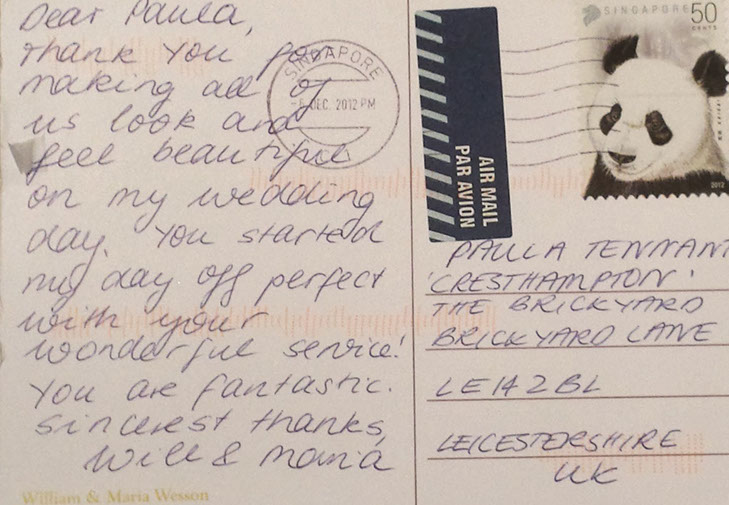 Dear Paula,
Thank you for
making all of
us look and
feel beautiful
on my wedding
day. You started
my day off perfect
with your
wonderful service!
You are fantastic.
Sincerest thanks,
Will & Maria
William & Maria Wesson
SINGAPORE
DEC. 2012 PM
AIR MAIL
PAR AVION
SINGAPORE 50
CENTS
2012
PAULA TENNANT
'CRESTHAMPTON'
THE BRICKYARD
BRICKYARD LANE
LE14 2BL
LEICESTERSHIRE
UK